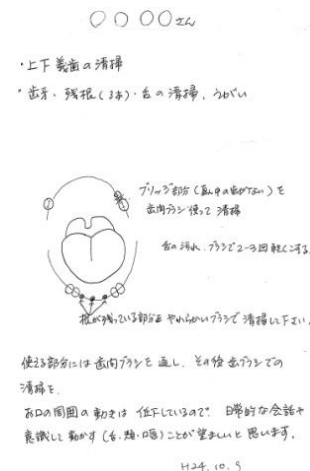 〇〇〇〇さん
・上下義歯の清掃
・歯牙・残根(3本)・舌の清掃、うがい
ブリッジ部分(真ん中の歯がない)を
歯間ブラシ使って清掃
舌の汚れ、ブラシで2~3回軽くこする。
根が残っている部分はやわらかいブラシで清掃して下さい。
使える部分には歯間ブラシを通し、その後歯ブラシでの
清掃を。
お口の周囲の動きは低下しているので、日常的な会話や
意識して動かす(舌、頬、口唇)ことが望ましいと思います。
H24.10.9